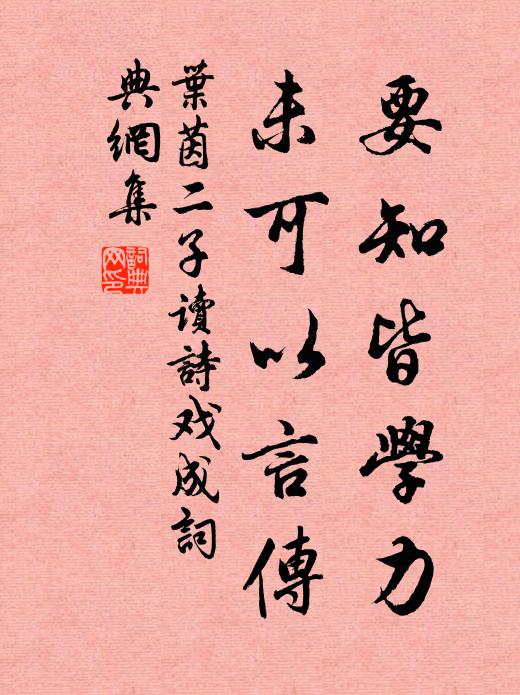 要知皆學力
未可以言傳
葉茵二子讀詩戏成詞
典網集
詞典网印